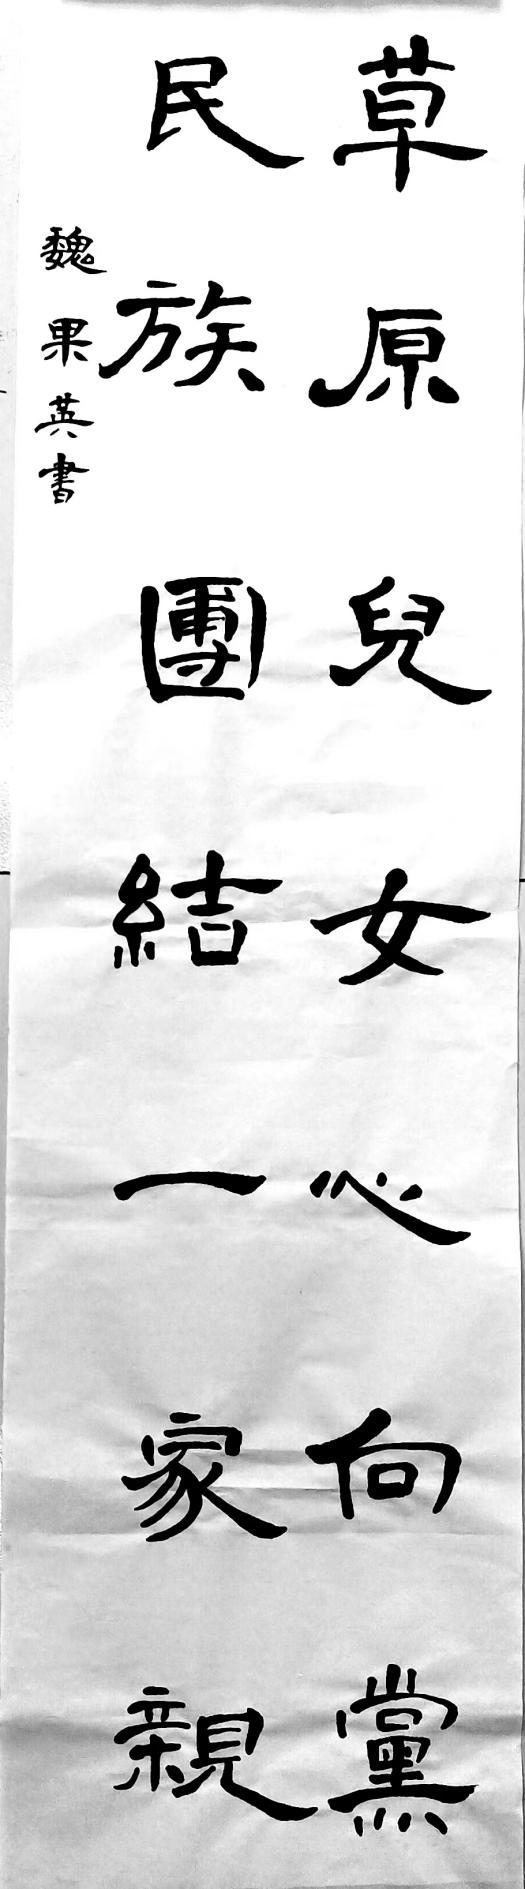 草原兒女心向黨
民族團結一家親
魏果英書